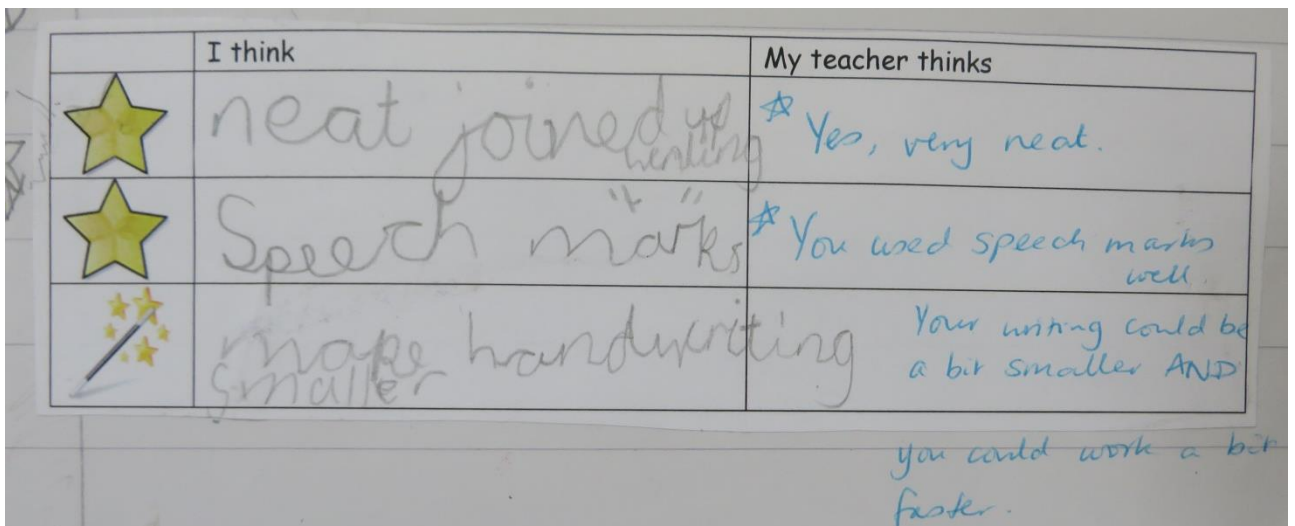 I think
My teacher thinks
neat joined up
writing
☆ Yes, very neat.
Speech marks
" "
☆ You used speech marks
well.
make handwriting
smaller
Your writing could be
a bit smaller AND
you could work a bit
faster.